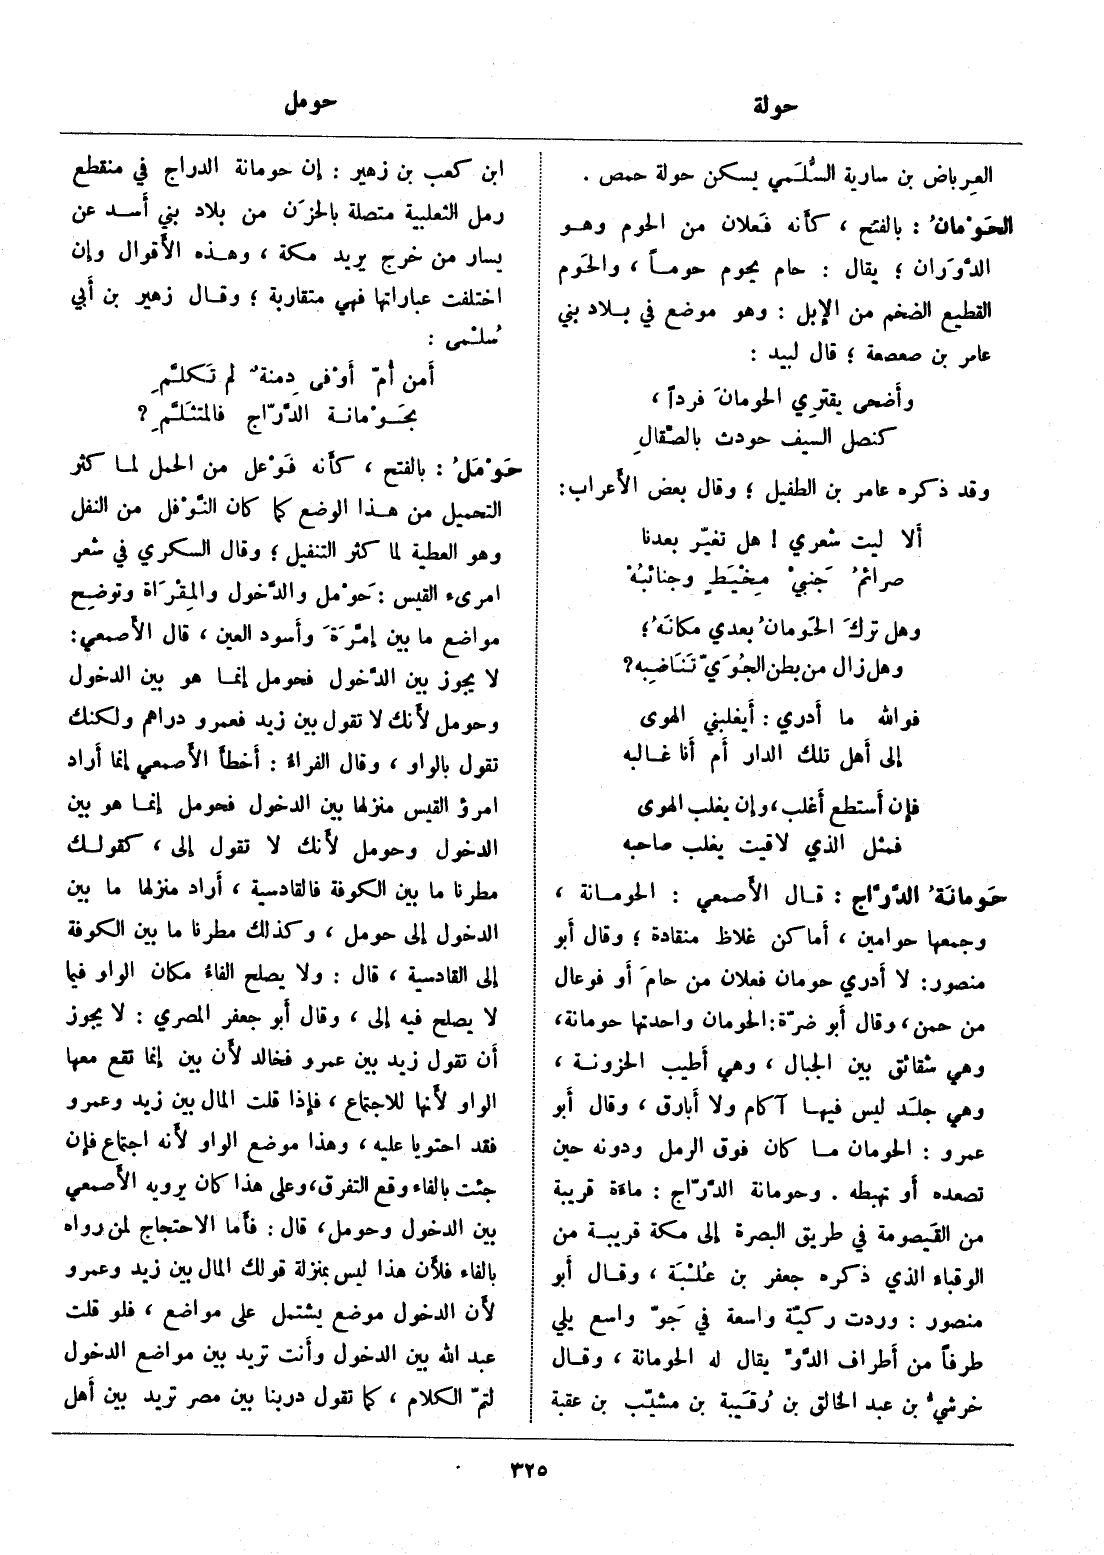 حولة
حومل
العِرباض بن سارية السُّلَمي يسكن حولة حمص .
الحَوْمانُ : بالفتح ، كأنه فَعلان من الحوم وهو
الدَّوَران ؛ يقال : حام يحوم حوماً ، والحَوم
القطيع الضخم من الإبل : وهو موضع في بلاد بني
عامر بن صعصعة ؛ قال لبيد :
وأضحى يقتري الحومانَ فرداً ،
كنصل السيف حودث بالصِّقالِ
وقد ذكره عامر بن الطفيل ؛ وقال بعض الأعراب:
ألا ليت شعري ! هل تغيّر بعدنا
صرائمُ جَنبيْ مِخْيَطٍ وجنائبُهْ
وهل تركَ الحَومانُ بعدي مكانَهُ ؛
وهل زال من بطن الجُوَيّ تَنَاضِبه؟
فوالله ما أدري : أيغلبني الهوى
إلى أهل تلك الدار أم أنا غالبه
فإن أستطع أغلب، وإن يغلب الهوى
فمثل الذي لاقيت يغلب صاحبه
حَومانَةُ الدَّرَّاج : قال الأصمعي : الحومانة ،
وجمعها حوامين ، أماكن غلاظ منقادة ؛ وقال أبو
منصور: لا أدري حومان فعلان من حامَ أو فوعال
من حمن، وقال أبو ضرّة: الحومان واحدتها حومانة،
وهي شقائق بين الجبال ، وهي أطيب الحزونة ،
وهي جلَد ليس فيها آكام ولا أبارق ، وقال أبو
عمرو : الحومان ما كان فوق الرمل ودونه حين
تصعده أو تهبطه . وحومانة الدَّرّاج : ماءة قريبة
من القَيصومة في طريق البصرة إلى مكة قريبة من
الوقباء الذي ذكره جعفر بن عُلْبَة ، وقال أبو
منصور : وردت ركيّة واسعة في جَوّ واسع يلي
طرفاً من أطراف الدَّوّ يقال له الحومانة ، وقال
خرشيُّ بن عبد الخالق بن رُقَيبة بن مشيّب بن عقبة
ابن كعب بن زهير : إن حومانة الدراج في منقطع
رمل الثعلبية متصلة بالحَزْن من بلاد بني أسد عن
يسار من خرج يريد مكة ، وهذه الأقوال وإن
اختلفت عباراتها فهي متقاربة ؛ وقال زهير بن أبي
سُلْمى :
أمن أُمّ أوْفى دِمنةٌ لم تَكلَّمِ
بحَوْمانة الدَّرّاج فالمتثَلَّمِ ؟
حَوْمَلُ : بالفتح ، كأنه فَوْعل من الحمل لما كثر
التحميل من هذا الوضع كما كان النَّوْفل من النفل
وهو العطية لما كثر التنفيل ؛ وقال السكري في شعر
امرىء القيس : حَوْمل والدَّخول والمِقْراة وتوضِح
مواضع ما بين إمَّرَةَ وأسود العين ، قال الأصمعي:
لا يجوز بين الدَّخول فحومل إنما هو بين الدخول
وحومل لأنك لا تقول بين زيد فعمرو دراهم ولكنك
تقول بالواو ، وقال الفراءُ : أخطأَ الأصمعي إنما أراد
امرؤ القيس منزلها بين الدخول فحومل إنما هو بين
الدخول وحومل لأنك لا تقول إلى ، كقولك
مطرنا ما بين الكوفة فالقادسية ، أراد منزلها ما بين
الدخول إلى حومل ، وكذلك مطرنا ما بين الكوفة
إلى القادسية ، قال : ولا يصلح الفاءُ مكان الواو فيما
لا يصلح فيه إلى ، وقال أبو جعفر المصري : لا يجوز
أن تقول زيد بين عمرو فخالد لأن بين إنما تقع معها
الواو لأنها للاجتماع ، فإذا قلت المال بين زيد وعمرو
فقد احتويا عليه ، وهذا موضع الواو لأنه اجتماع فإن
جئت بالفاء وقع التفرق، وعلى هذا كان يرويه الأصمعي
بين الدخول وحومل، قال : فأما الاحتجاج لمن رواه
بالفاء فلأن هذا ليس بمنزلة قولك المال بين زيد وعمرو
لأن الدخول موضع يشتمل على مواضع ، فلو قلت
عبد الله بين الدخول وأنت تريد بين مواضع الدخول
لتمّ الكلام ، كما تقول دربنا بين مصر تريد بين أهل
٣٢٥